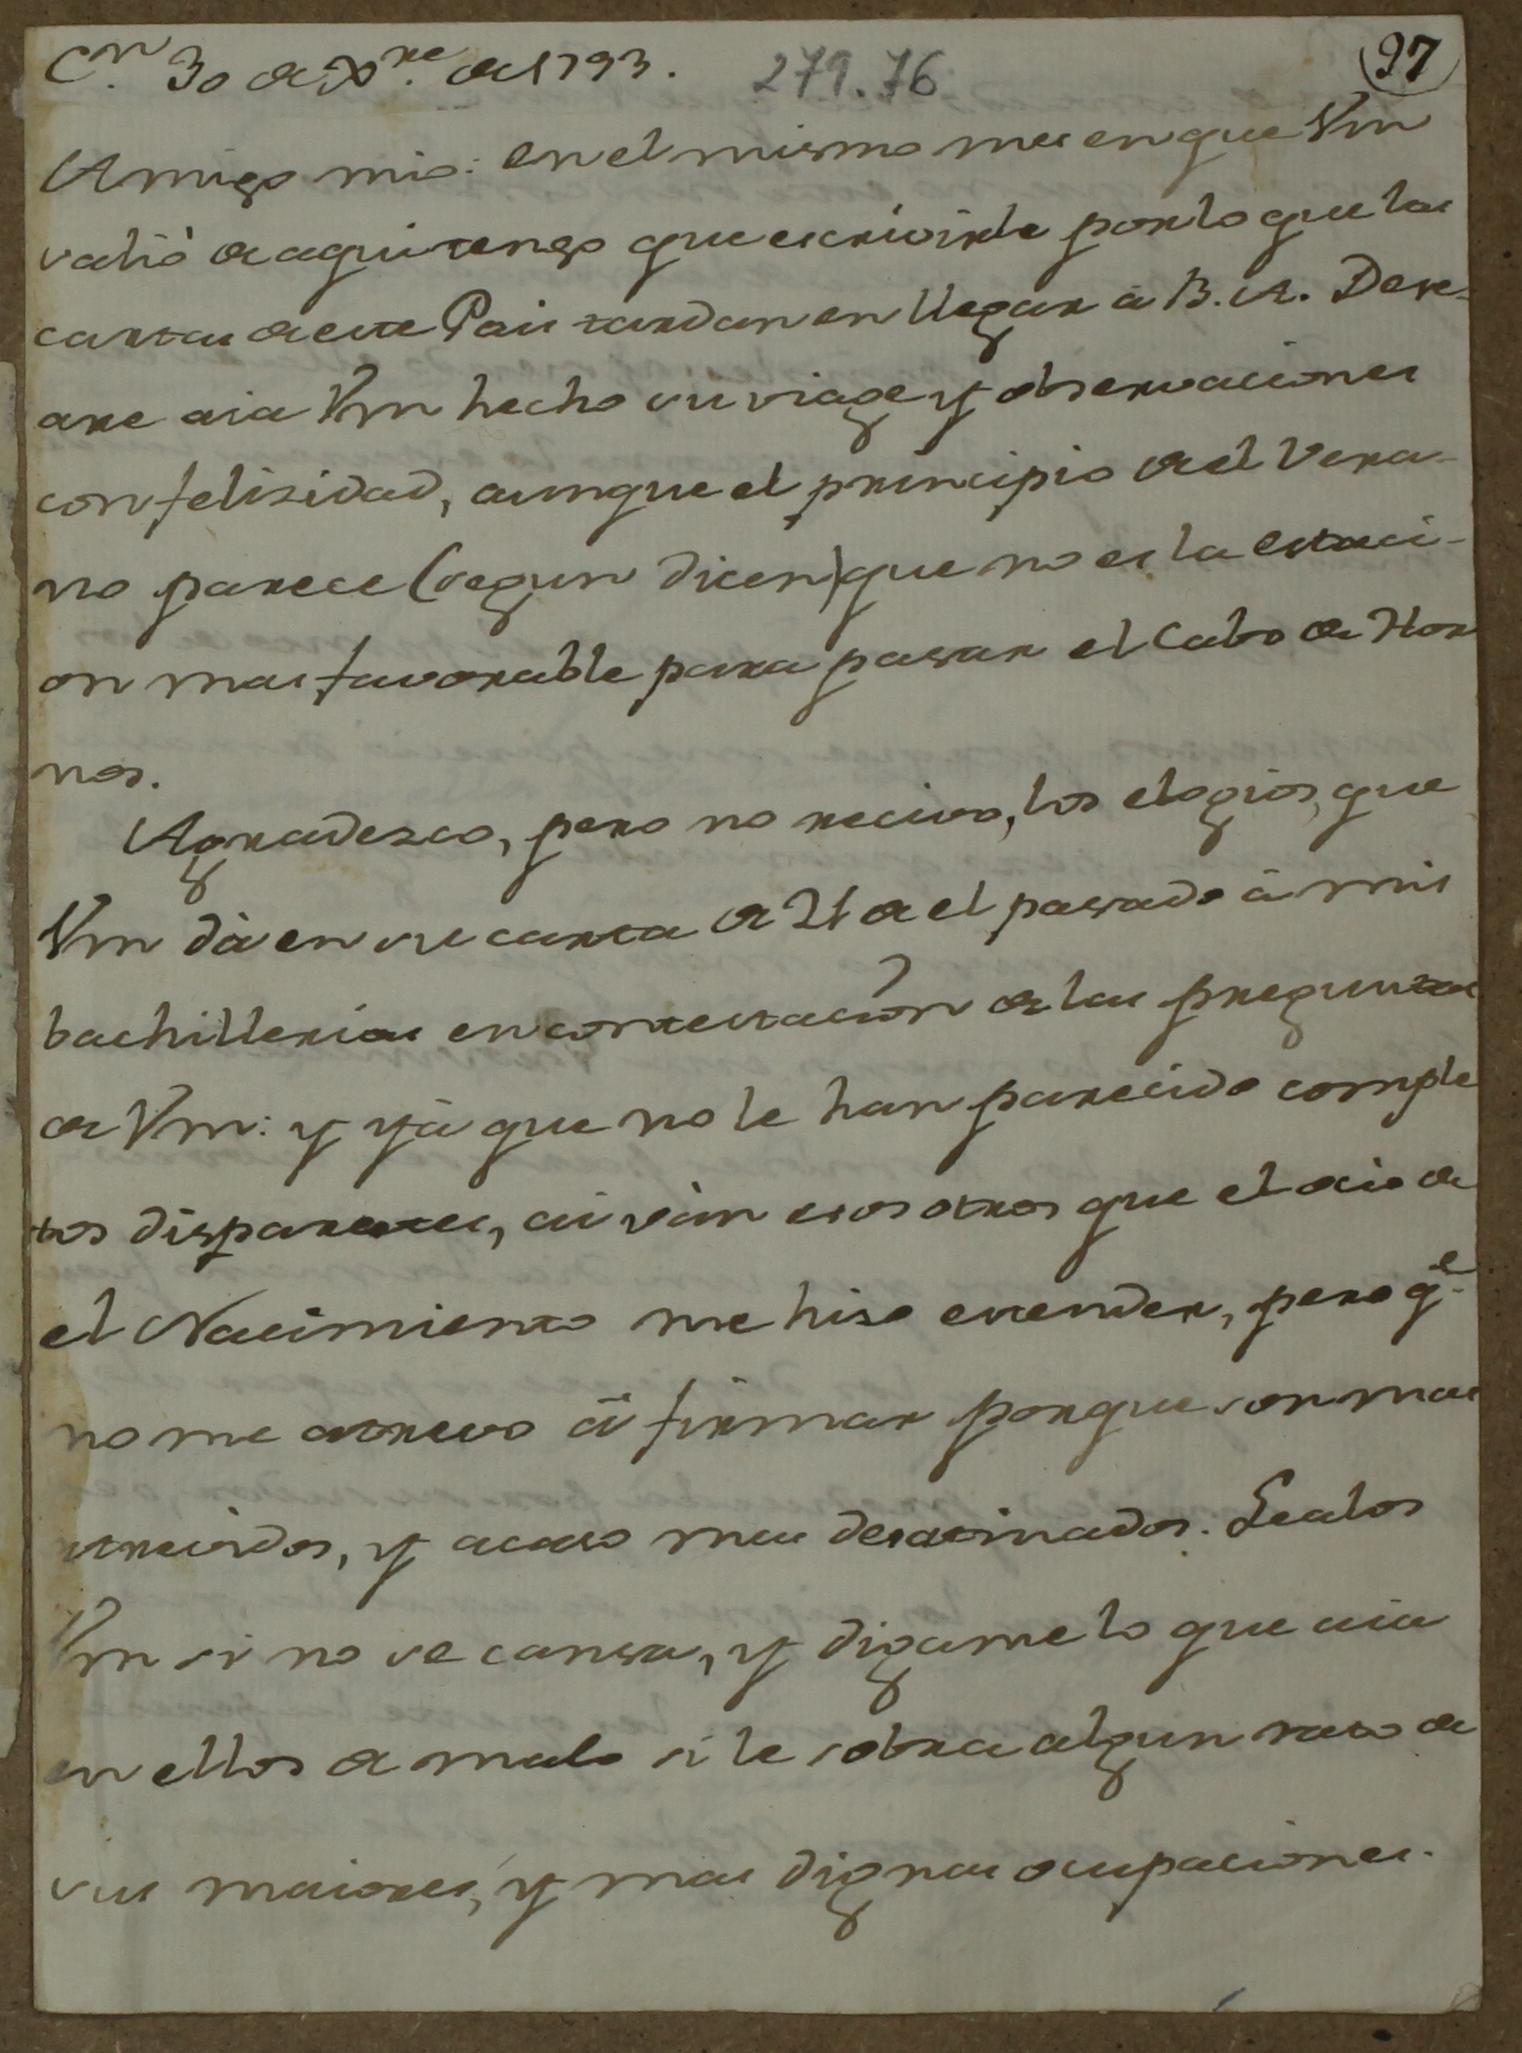 Cn. 30 de Xre. de 1793. 279.76 97
Amigo mio: en el mismo mes en que Vm
salió de aqui tengo que escrivirle por lo que las
cartas de este Pais tardan en llegar á B. A. Dese-
are aia Vm hecho su viage y observaciones
con felisidad, aunque el principio de el Vera-
no parece (segun dicen) que no es la estaci-
on mas favorable para pasar el Cabo de Hor
nos.
Agradesco, pero no recivo, los elogios, que
Vm dá en su carta de 21 de el pasado á mis
bachillerias en contestación de las preguntas
de Vm: y yá que no le han parecido comple
tos disparates, ai ván esos otros que el ocio de
el Nacimiento me hiso estender, pero q.e
no me atrevo á firmar porque son mas
atrevidos, y acaso mas desatinados. Lealos
Vm si no se cansa, y digame lo que aia
en ellos de malo si le sobra algun rato de
sus maiores, y mas dignas ocupaciones.